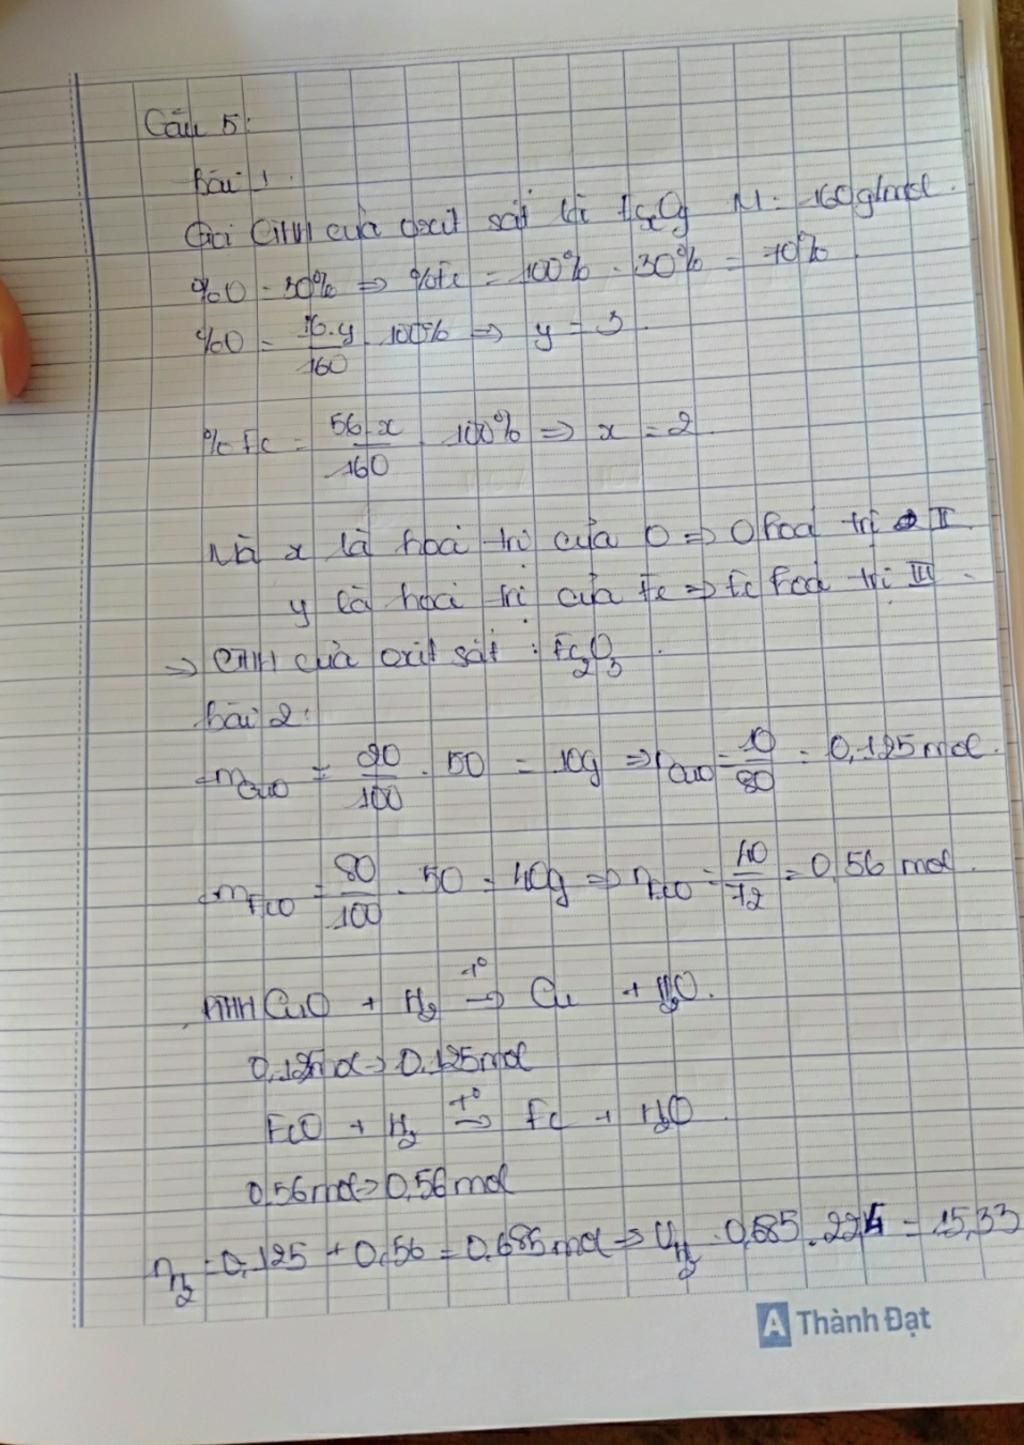 Câu 5:
Bài 1.
Gọi CTHH của oxit sắt là FexOy M = 160g/mol.
%O = 30% => %Fe = 100% - 30% = 70%
%O = 16.y/160 . 100% => y = 3.
%Fe = 56.x/160 . 100% => x = 2.
Mà x là hoá trị của O => O hoá trị II
y là hoá trị của Fe => Fe hoá trị III.
-> CTHH của oxit sắt : Fe2O3.
Bài 2:
+ mCuO = 20/100 . 50 = 10g => nCuO = 10/80 = 0,125 mol.
+ mFeO = 80/100 . 50 = 40g => nFeO = 40/72 = 0,56 mol.
PTHH CuO + H2 t° -> Cu + H2O.
0,125mol -> 0,125mol
FeO + H2 t° -> Fe + H2O.
0,56mol -> 0,56mol
nH2 = 0,125 + 0,56 = 0,685mol => VH2 = 0,685 . 22,4 = 15,33
A Thành Đạt